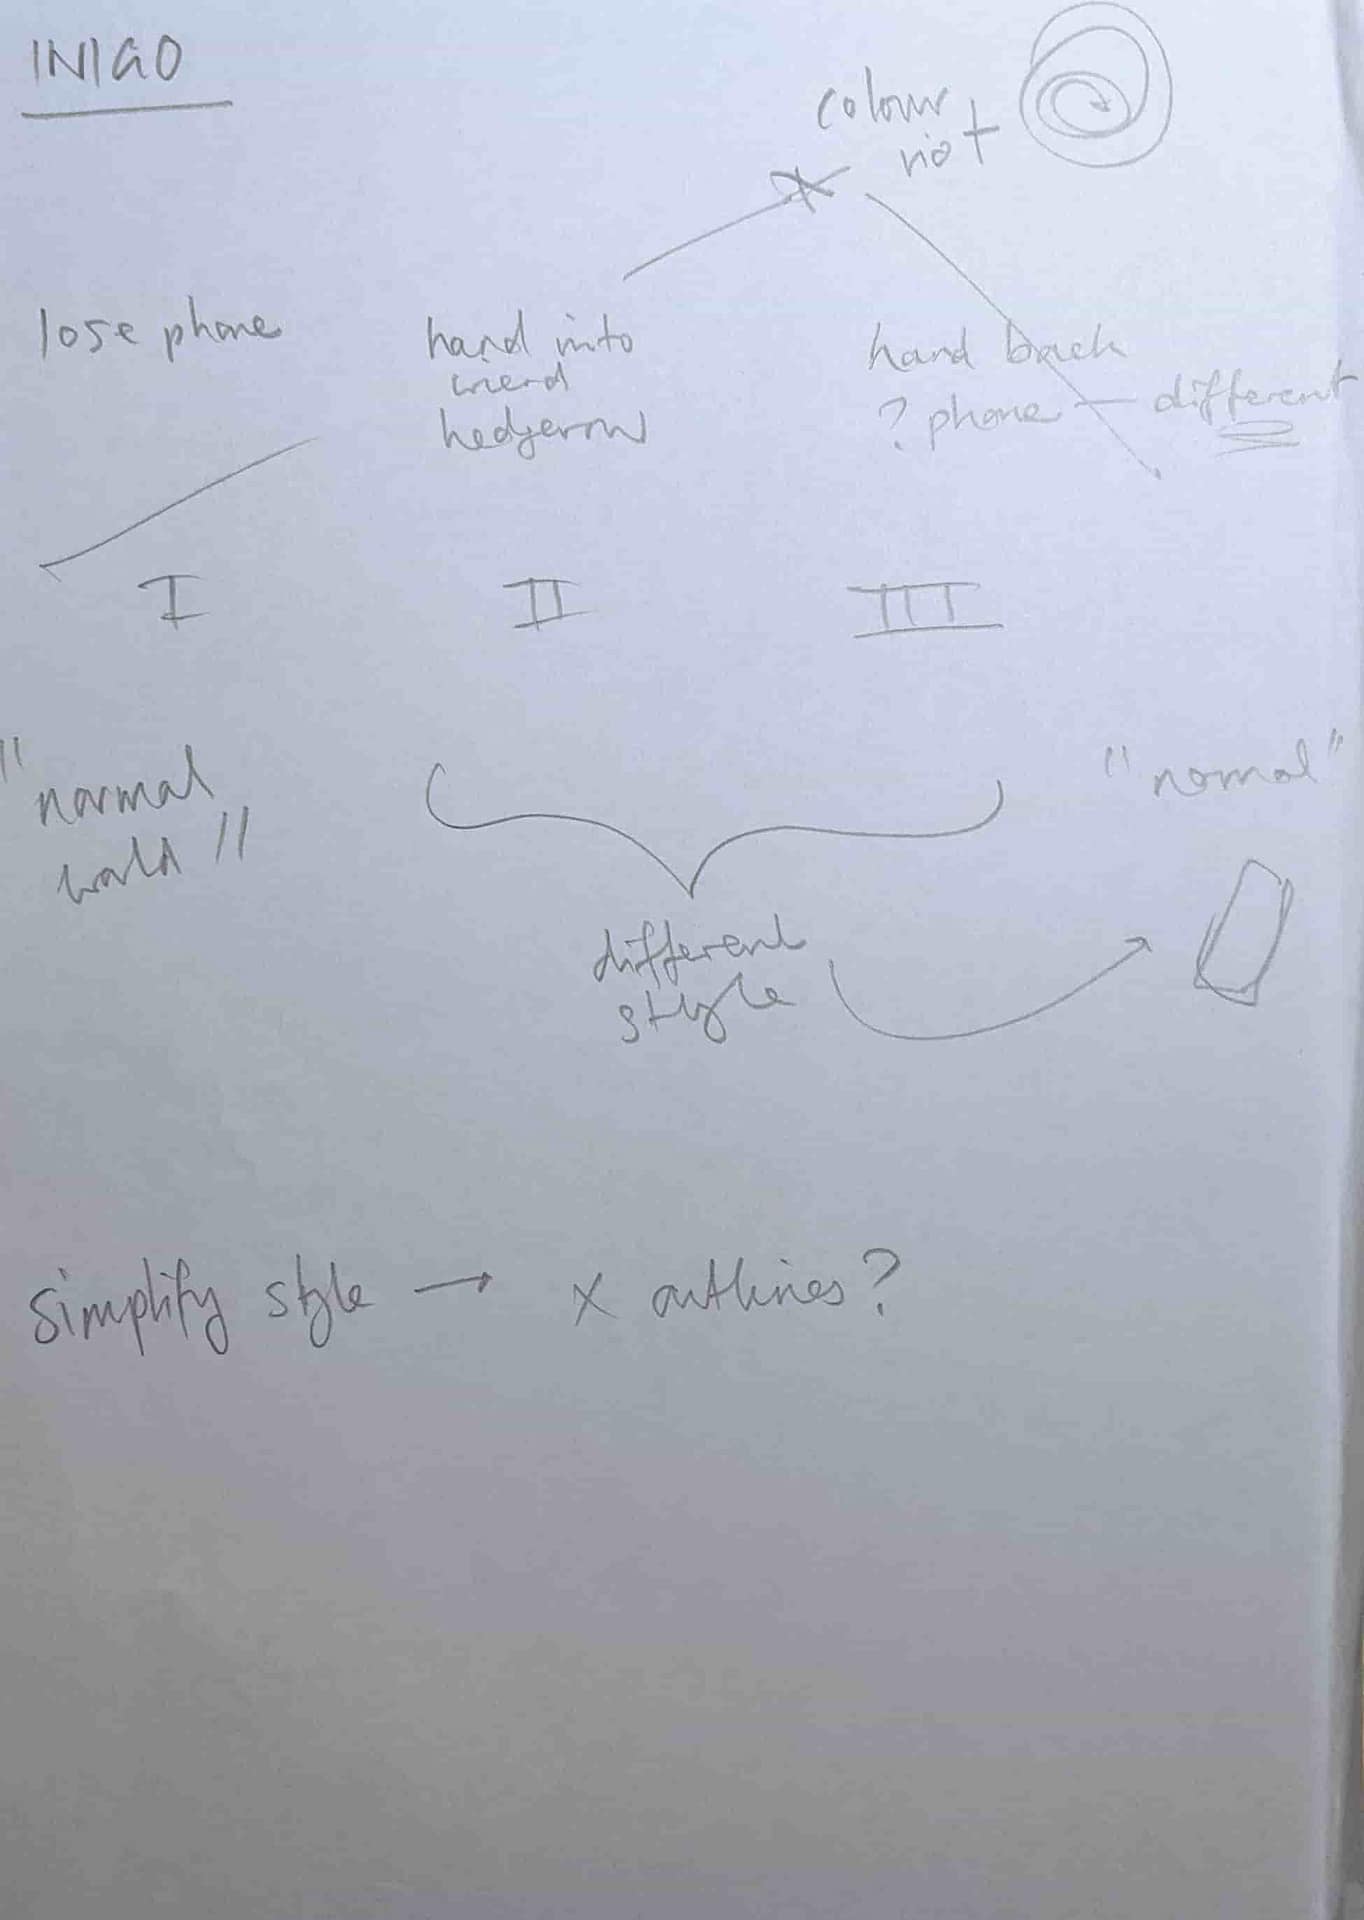 INIGO
colour
riot
lose phone
hand into
wierd
hedgerow
hand back
? phone — different
I
II
III
"normal
world"
"normal"
different
style
simplify style → x outlines?